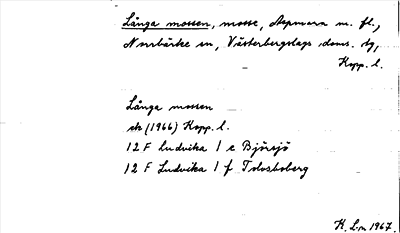 Långa mossen, mosse, Aspnoran m. fl.,
Norrbärke sn, Västerbergslags doms. tg,
Kopp. l.
Långa mossen
ek (1966) Kopp. l.
12 F Ludvika 1 e Björsjö
12 F Ludvika 1 f Tolvsboberg
K. L-n 1967.